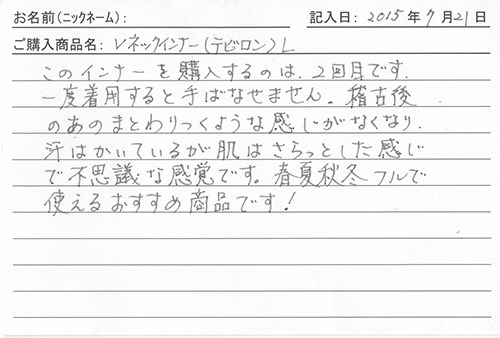 お名前(ニックネーム): 記入日: 2015年7月21日
ご購入商品名: Vネックインナー(テビロン)L
このインナーを購入するのは、2回目です.
一度着用すると手ばなせません。稽古後
のあのまとわりつくような感じがなくなり.
汗はかいているが肌はさらっとした感じ
で不思議な感覚です。春夏秋冬フルで
使えるおすすめ商品です!